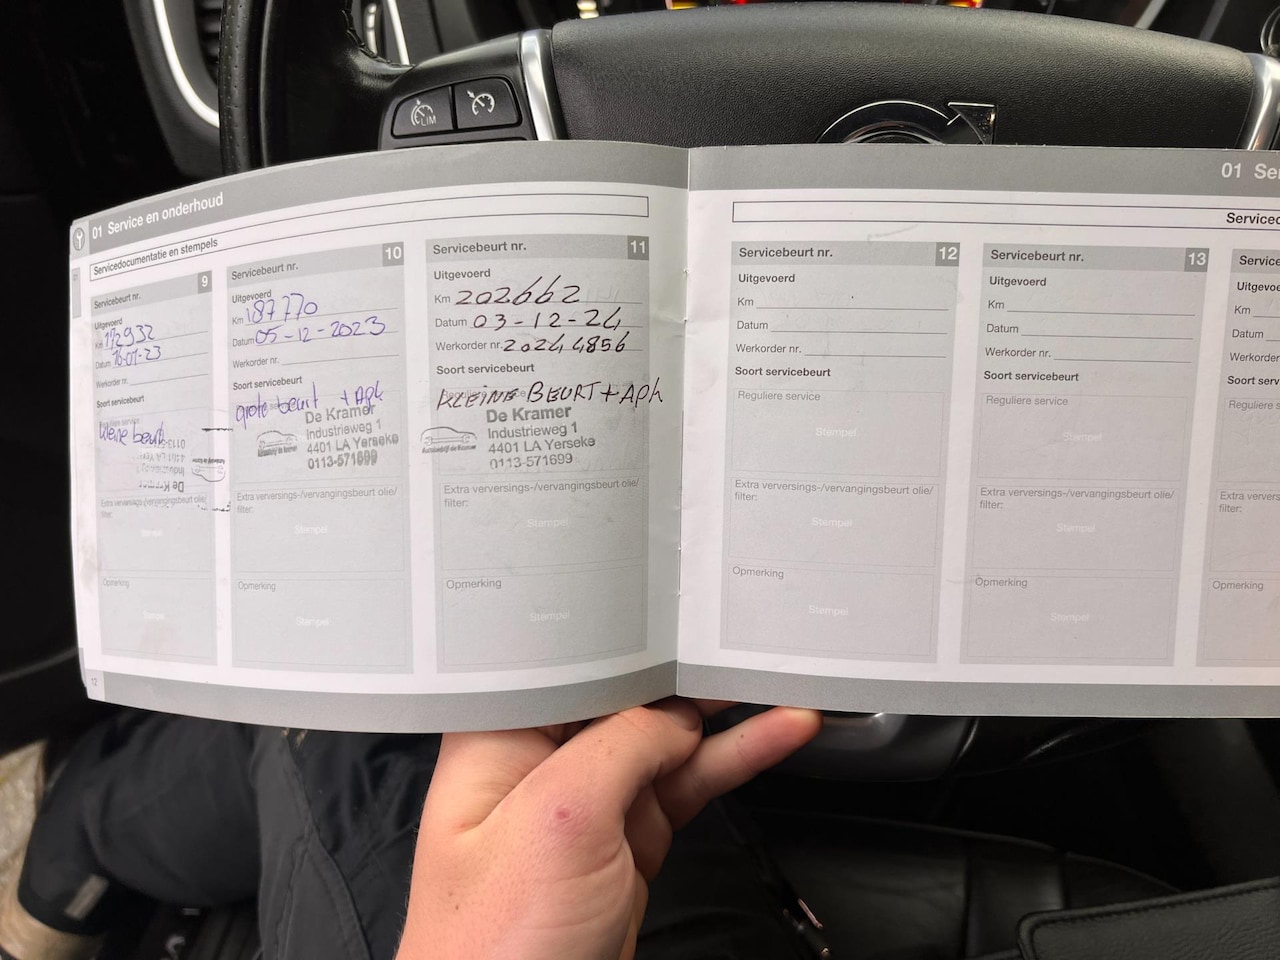 LIM
01 Service en onderhoud
Servicedocumentatie en stempels
Servicebeurt nr. 9
Uitgevoerd
Km 172932
Datum 16-01-23
Werkorder nr.
Soort servicebeurt
Reguliere service
kleine beurt
0113-571699
4401 LA Yerseke
Industrieweg 1
De Kramer
Extra verversings-/vervangingsbeurt olie/
filter:
Stempel
Opmerking
Stempel
12
Servicebeurt nr. 10
Uitgevoerd
Km 187770
Datum 05-12-2023
Werkorder nr.
Soort servicebeurt
grote beurt + Apk
De Kramer
Industrieweg 1
4401 LA Yerseke
0113-571699
Extra verversings-/vervangingsbeurt olie/
filter:
Stempel
Opmerking
Stempel
Servicebeurt nr. 11
Uitgevoerd
Km 202662
Datum 03-12-24
Werkorder nr. 20244856
Soort servicebeurt
Reguliere service
KLEINE BEURT + APk
De Kramer
Industrieweg 1
4401 LA Yerseke
0113-571699
Extra verversings-/vervangingsbeurt olie/
filter:
Stempel
Opmerking
Stempel
01 Se
Serviced
Servicebeurt nr. 12
Uitgevoerd
Km
Datum
Werkorder nr.
Soort servicebeurt
Reguliere service
Stempel
Extra verversings-/vervangingsbeurt olie/
filter:
Stempel
Opmerking
Stempel
Servicebeurt nr. 13
Uitgevoerd
Km
Datum
Werkorder nr.
Soort servicebeurt
Reguliere service
Stempel
Extra verversings-/vervangingsbeurt olie/
filter:
Stempel
Opmerking
Stempel
Service
Uitgevoe
Km
Datum
Werkorder
Soort serv
Reguliere s
Extra ververs
filter:
Opmerking